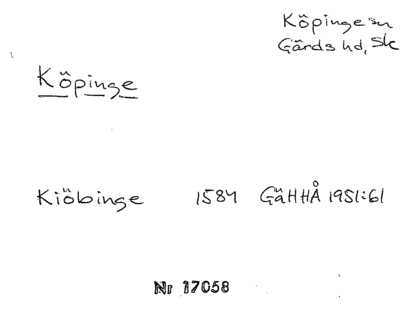 Köpinge sn
Gärds hd, Sk
Köpinge
Kiöbinge 1584 GäHHÅ 1951:61
Nr 17058